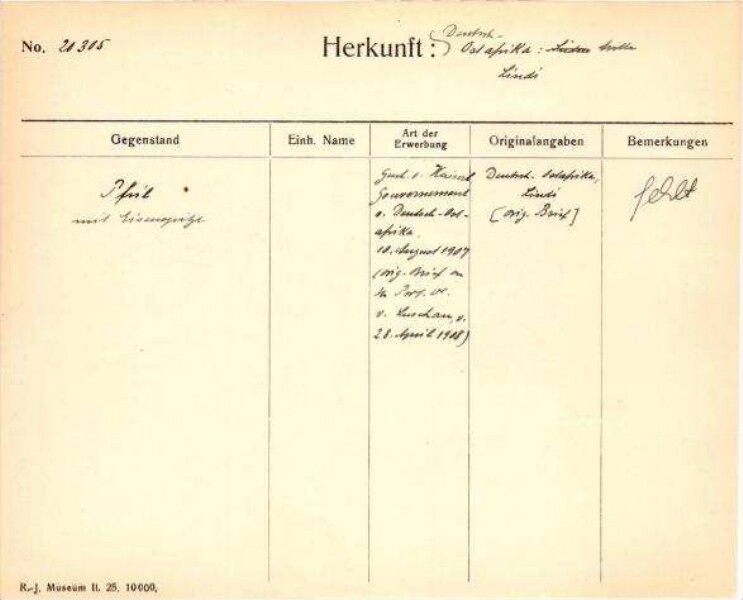 No. 20305
Herkunft : Deutsch-
Ostafrika :
Lindi
Gegenstand
Einh. Name
Art der
Erwerbung
Originalangaben
Bemerkungen
Pfeil
mit Eisenspitze
v. Kaiserl
Gouvernement
v. Deutsch-Ost-
afrika.
10. August 1907
(orig. Brief an
Prof. Dr.
v. Luschan, v.
28. April 1908)
Deutsch. Ostafrika,
Lindi
[orig. Brief]
fehlt
R.-J. Museum II. 25. 10000,